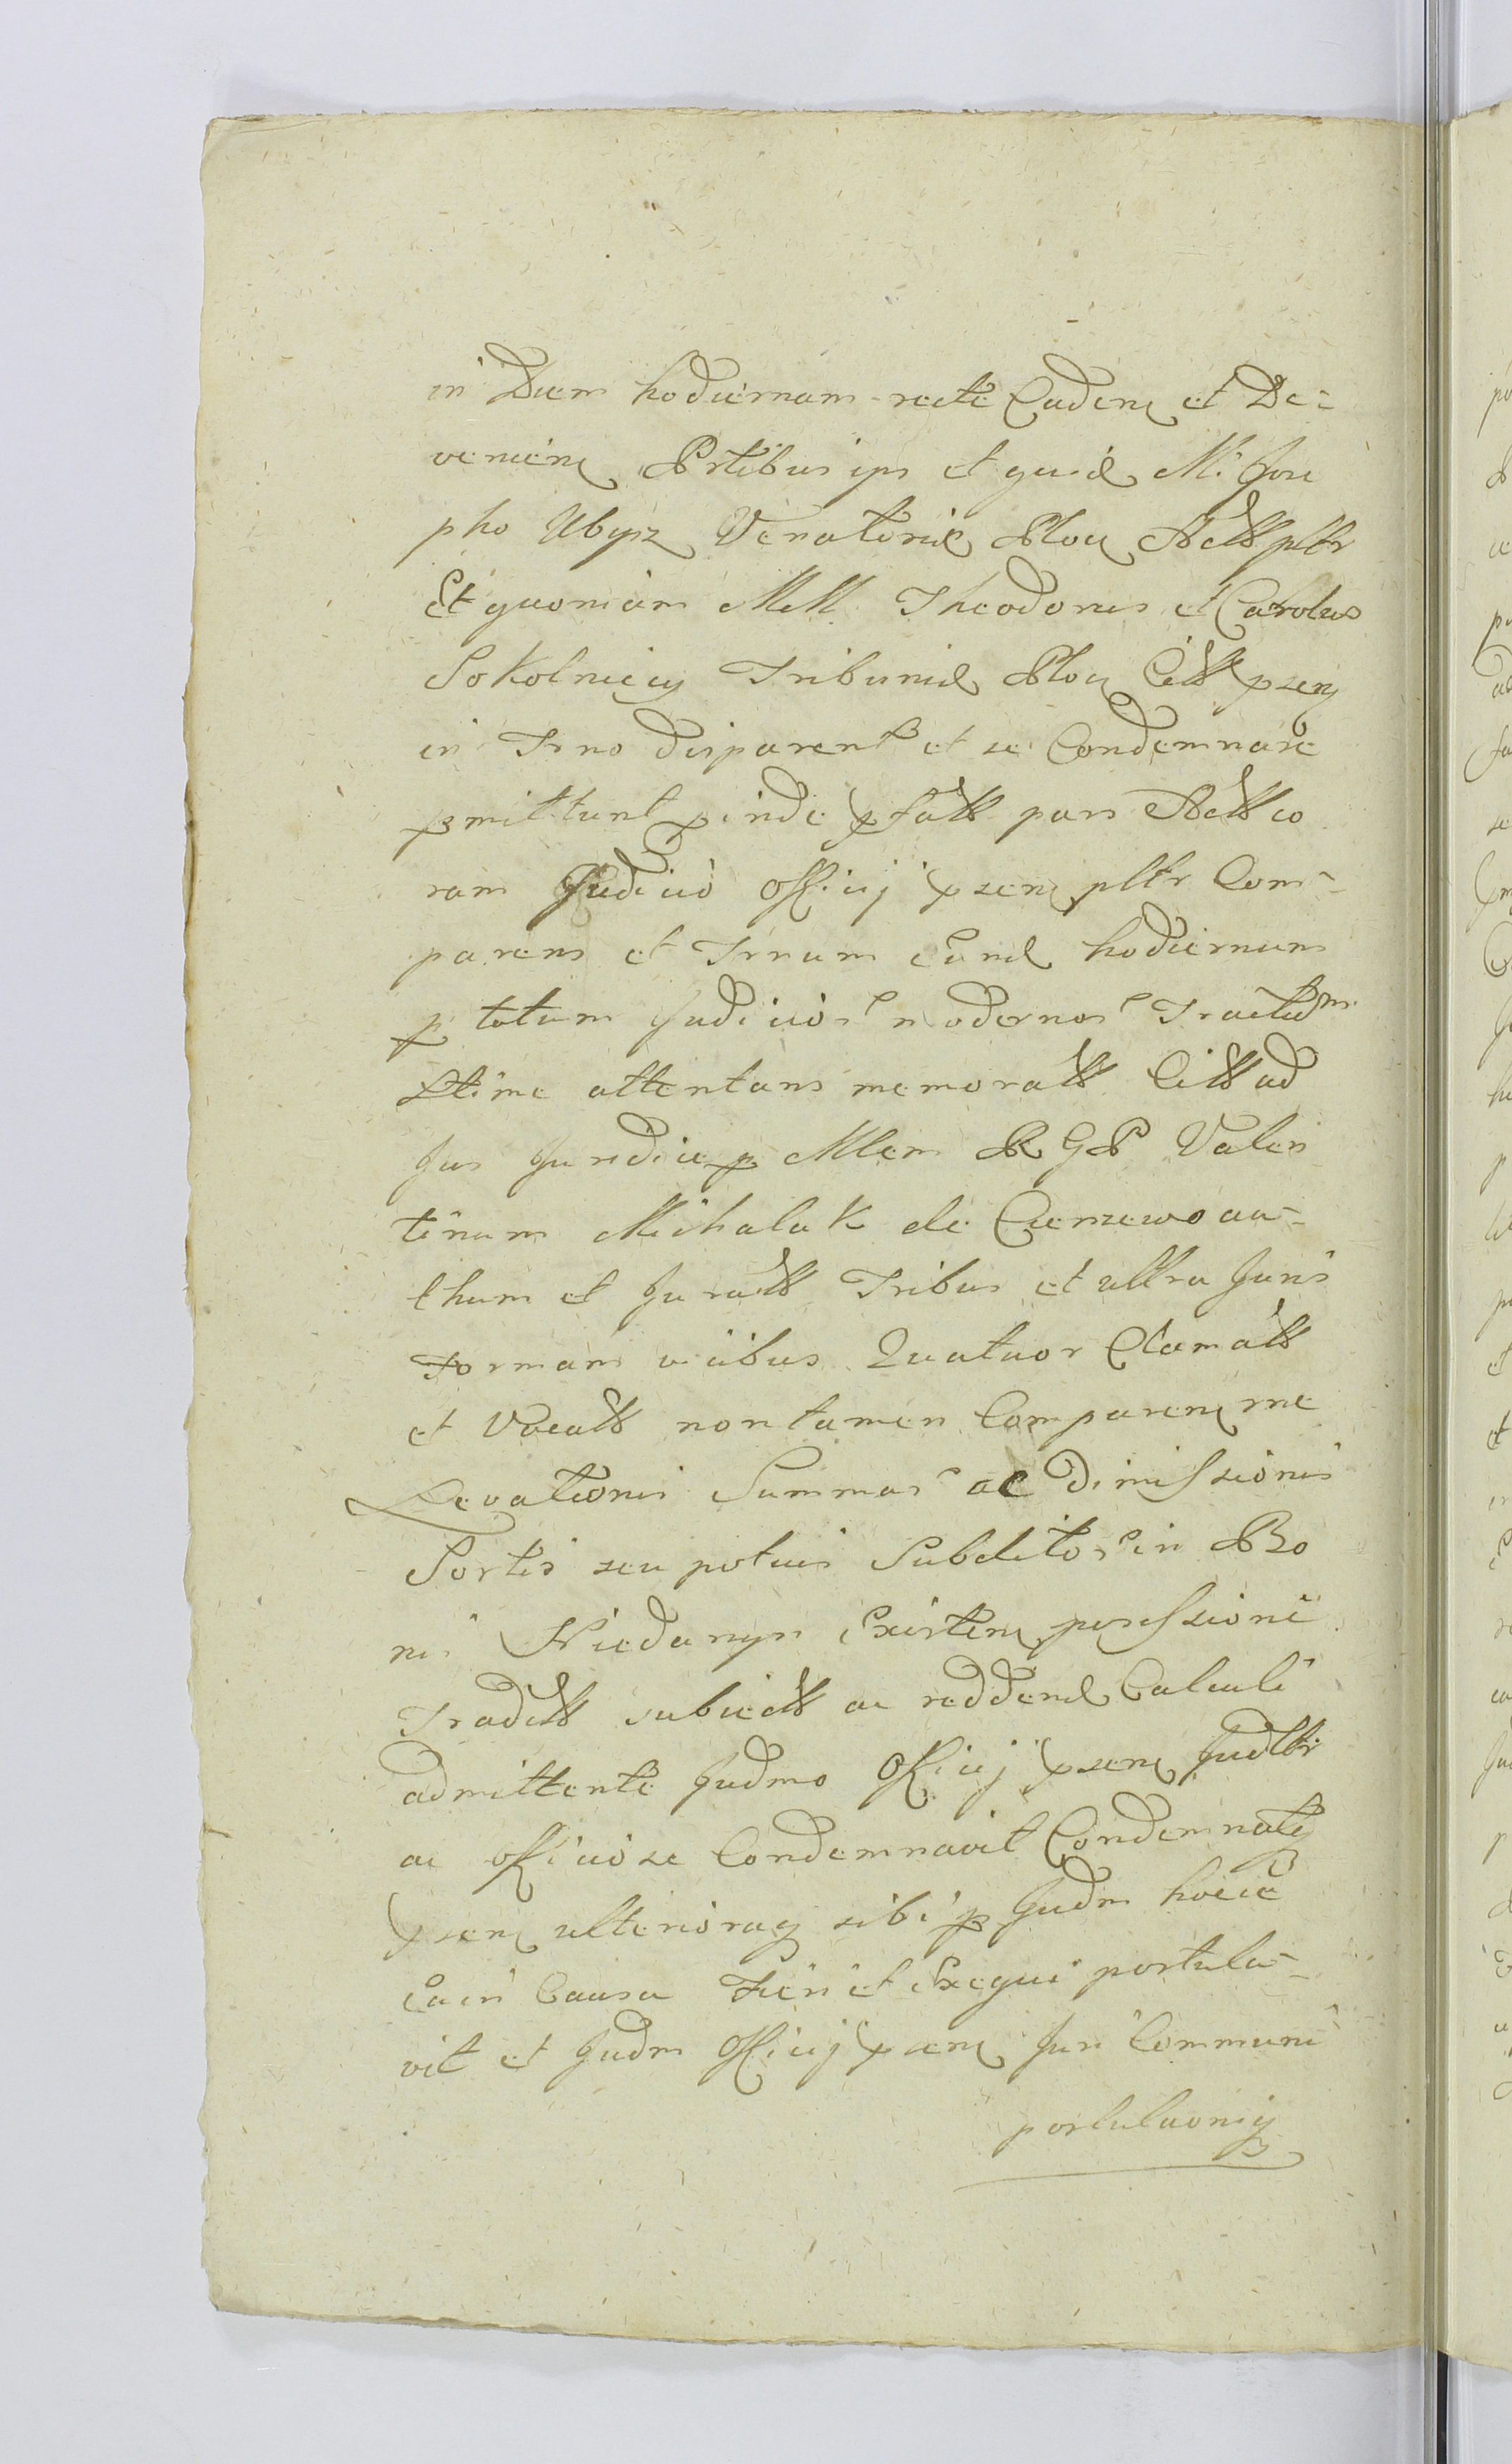 in Diem hodiernam recte Caden et De=
venien Prtibus ips et quid M. Jose
pho Ubysz Venatorid Plou Actt pltr
Et quoniam MM. Theodorus et Carolus
Sokolniccy Tribunid Plou Citt psen
in Trno disparent et se Condemnare
pmittunt pinde pfatt pars Actt co
ram Judicio Officij psen pltr Com-
parens et Trnum eund hodiernum
p totum Judicior modernor Tractum
Ltime attentans memoratt Citt ad
Jus Juridice p Mlem RGP Valen
tinum Michalak de Ciemzewo au-
thum et Juratt Tribus et ultra Juris
Formam vicibus Quatuor Clamatt
et Vocatt non tamen Comparen rne
Levationis Summar ac Dimissionis
Sortis seu potius Subditor in Bo
nis Niedanyn Existen possessione
Tradtt subiectt ac reddend Calculi
admittente Judmo Officij psen Judltr
ac officiose Condemnavit Condemnatq
psen ulterioraq sibi p Judm hocce
ea in Causa Fieri et Exequi postula-
vit et Judm Officij psen Juri Communi
postulaoniq